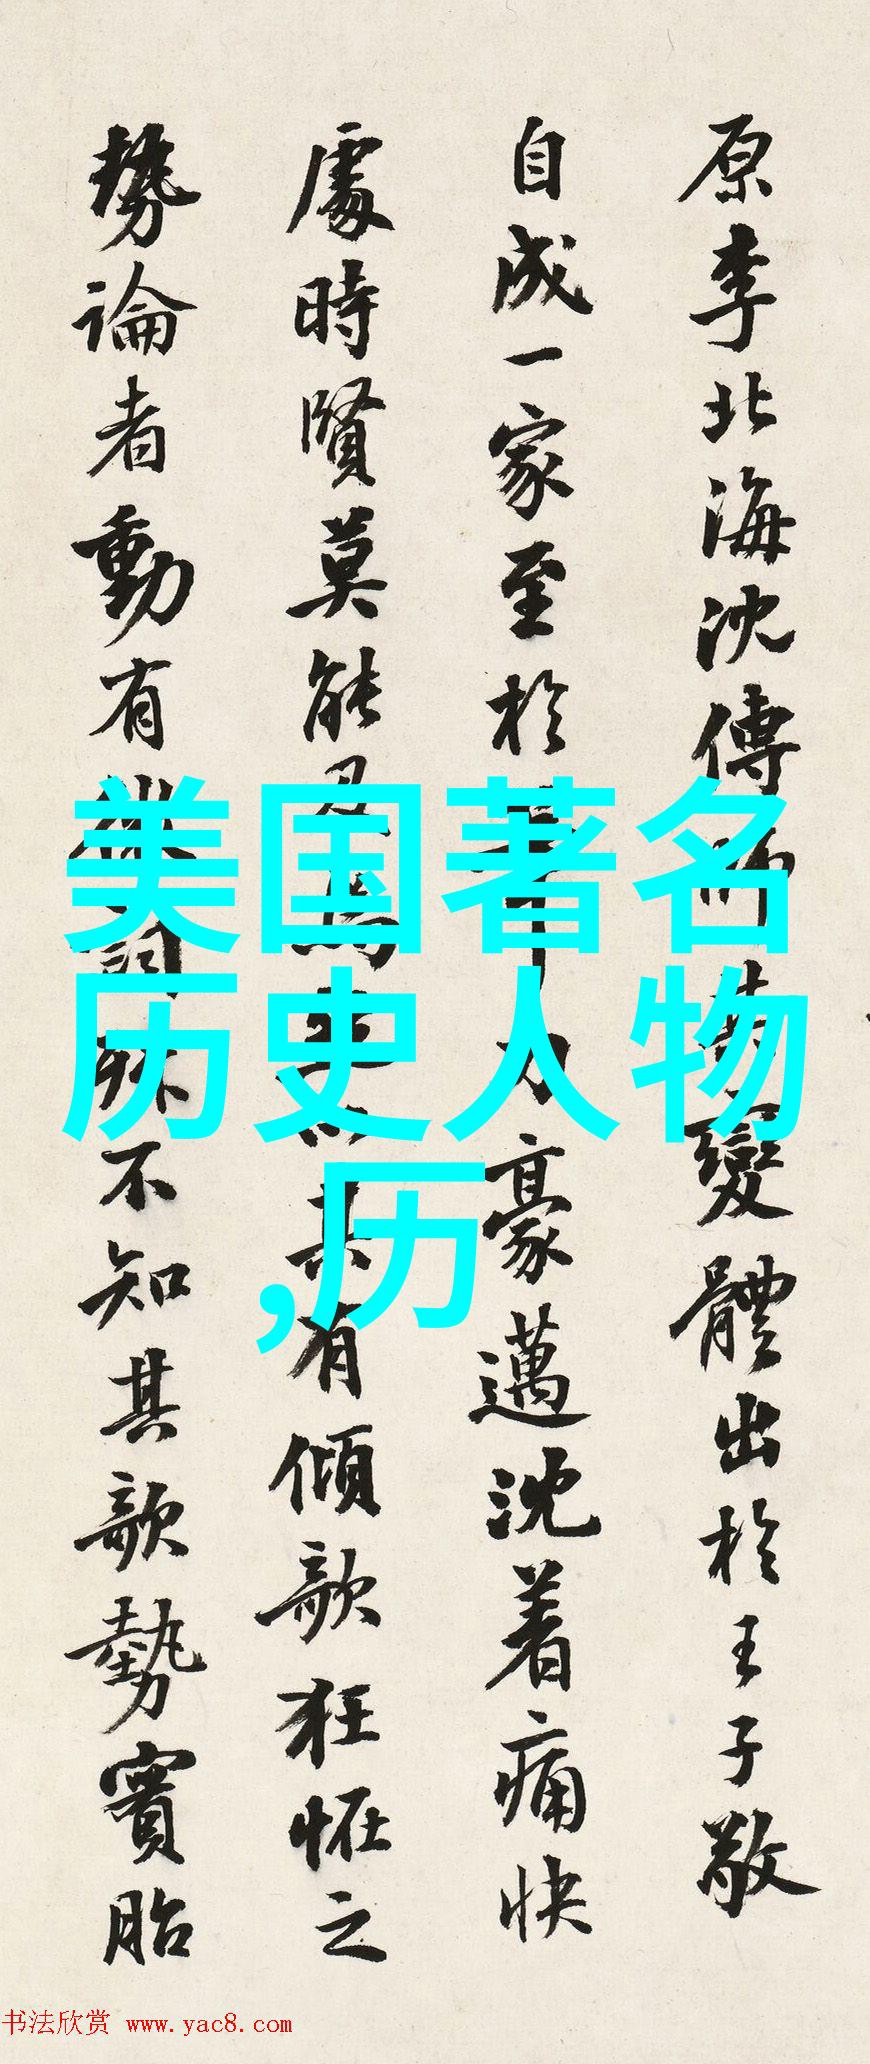 原李北海沈傳師變體出於王子敬
自成一家至於力豪邁沈着痛快
處時賢莫能其有傾欹狂怪之
勢論者動有微詞殊不知其欹勢實胎
美国著名
历史人物
,历
书法欣赏 www.yac8.com